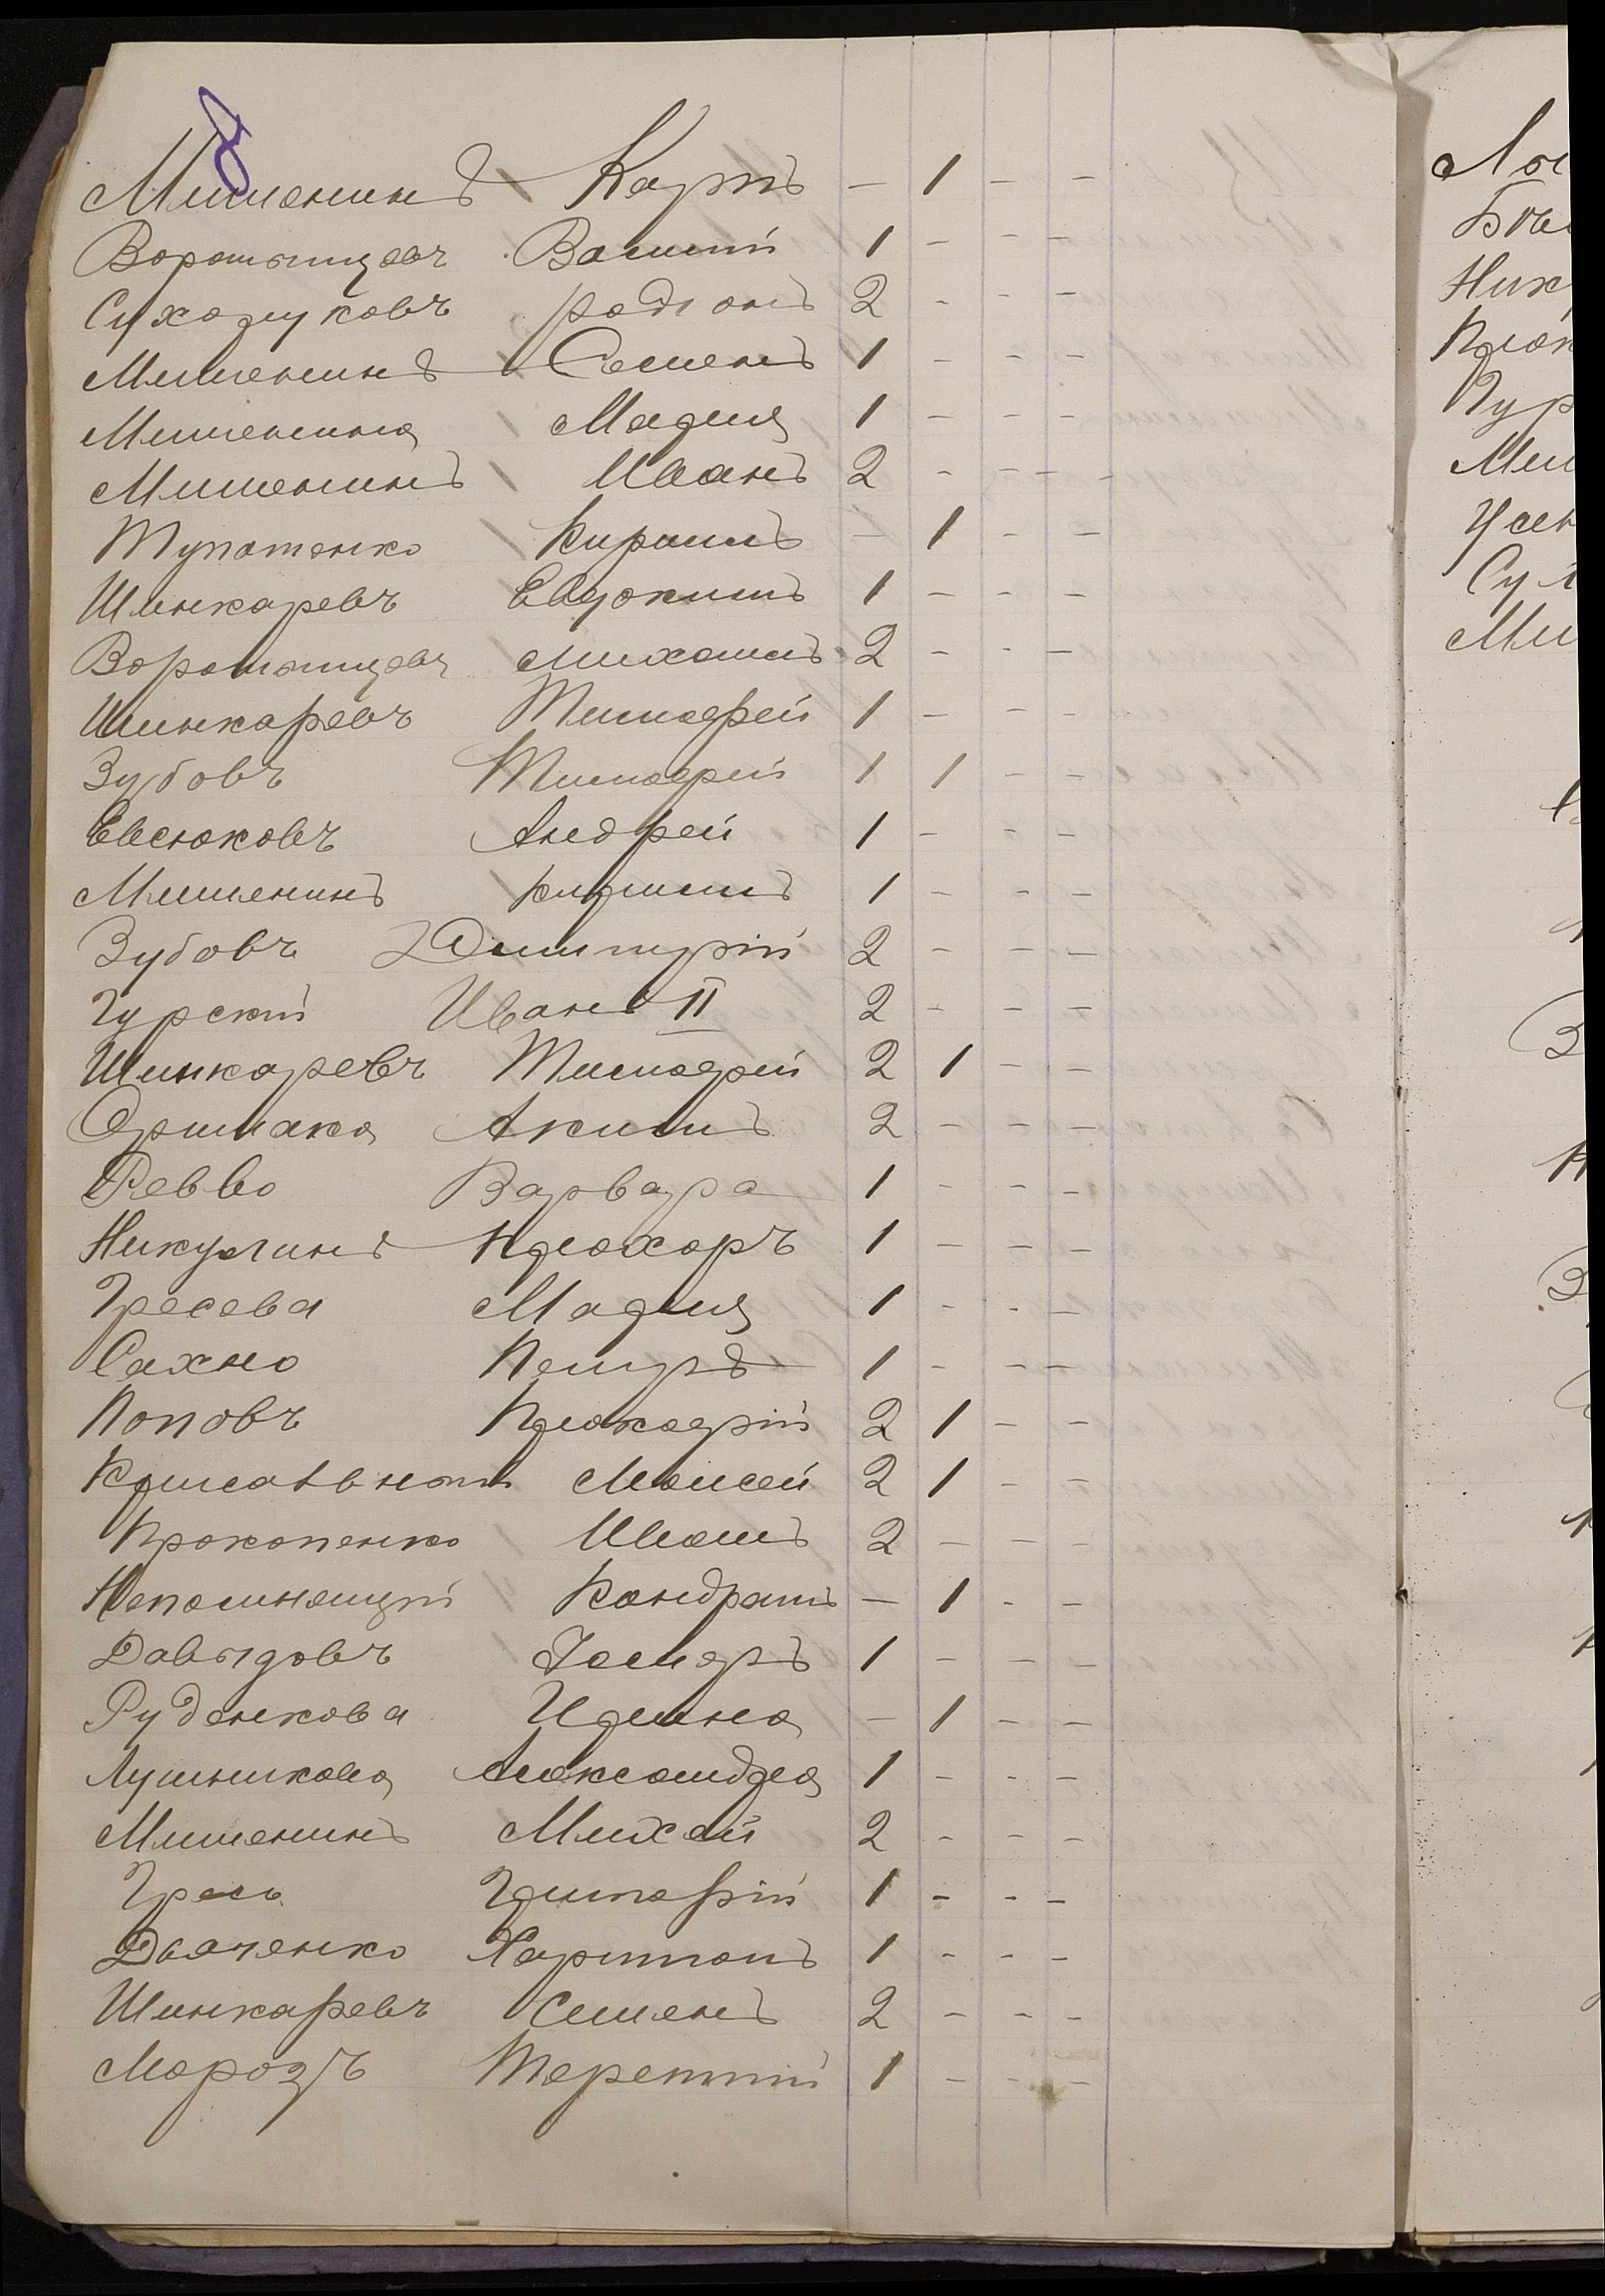 8
Мишенинъ Карпъ — 1 - -
Воротынцевъ Василій 1 - - -
Сухоруковъ Родіонъ 2 - - -
Мишенинъ Семенъ 1 - - -
Мишенина Марія 1 - - -
Мишенинъ Иванъ 2 - - -
Тупотенко Кирилъ - 1 - -
Шинкаревъ Евдокимъ 1 - - -
Воротынцевъ Михаилъ 2 - - -
Шинкаревъ Тимофей 1 - - -
Зубовъ Тимофей 1 1 - -
Евсюковъ Андрей 1 - - -
Мишенинъ Кирилъ 1 - - -
Зубовъ Димитрій 2 - - -
Гурскій Иванъ II 2 - - -
Шинкаревъ Тимофей 2 1 - -
Ермака Акимъ 2 - - -
Ревво Варвара 1 - - -
Никулинъ Прохоръ 1 - - -
Гресева Марія 1 - - -
Сахно Петръ 1 - - -
Поповъ Прокофій 2 1 - -
Моисей 2 1 - -
Прокопенко Иванъ 2 - - -
Непомнящій Кондратъ — 1 - -
Давыдовъ 1 - - -
Руденкова Ирина — 1 - -
Лушникова Александра 1 - - -
Мишенинъ Михей 2 - - -
Гресь Григорій 1 - - -
Дьяченко Харитонъ 1 - - -
Шинкаревъ Семенъ 2 - - -
Морозъ Терентій 1 - - -